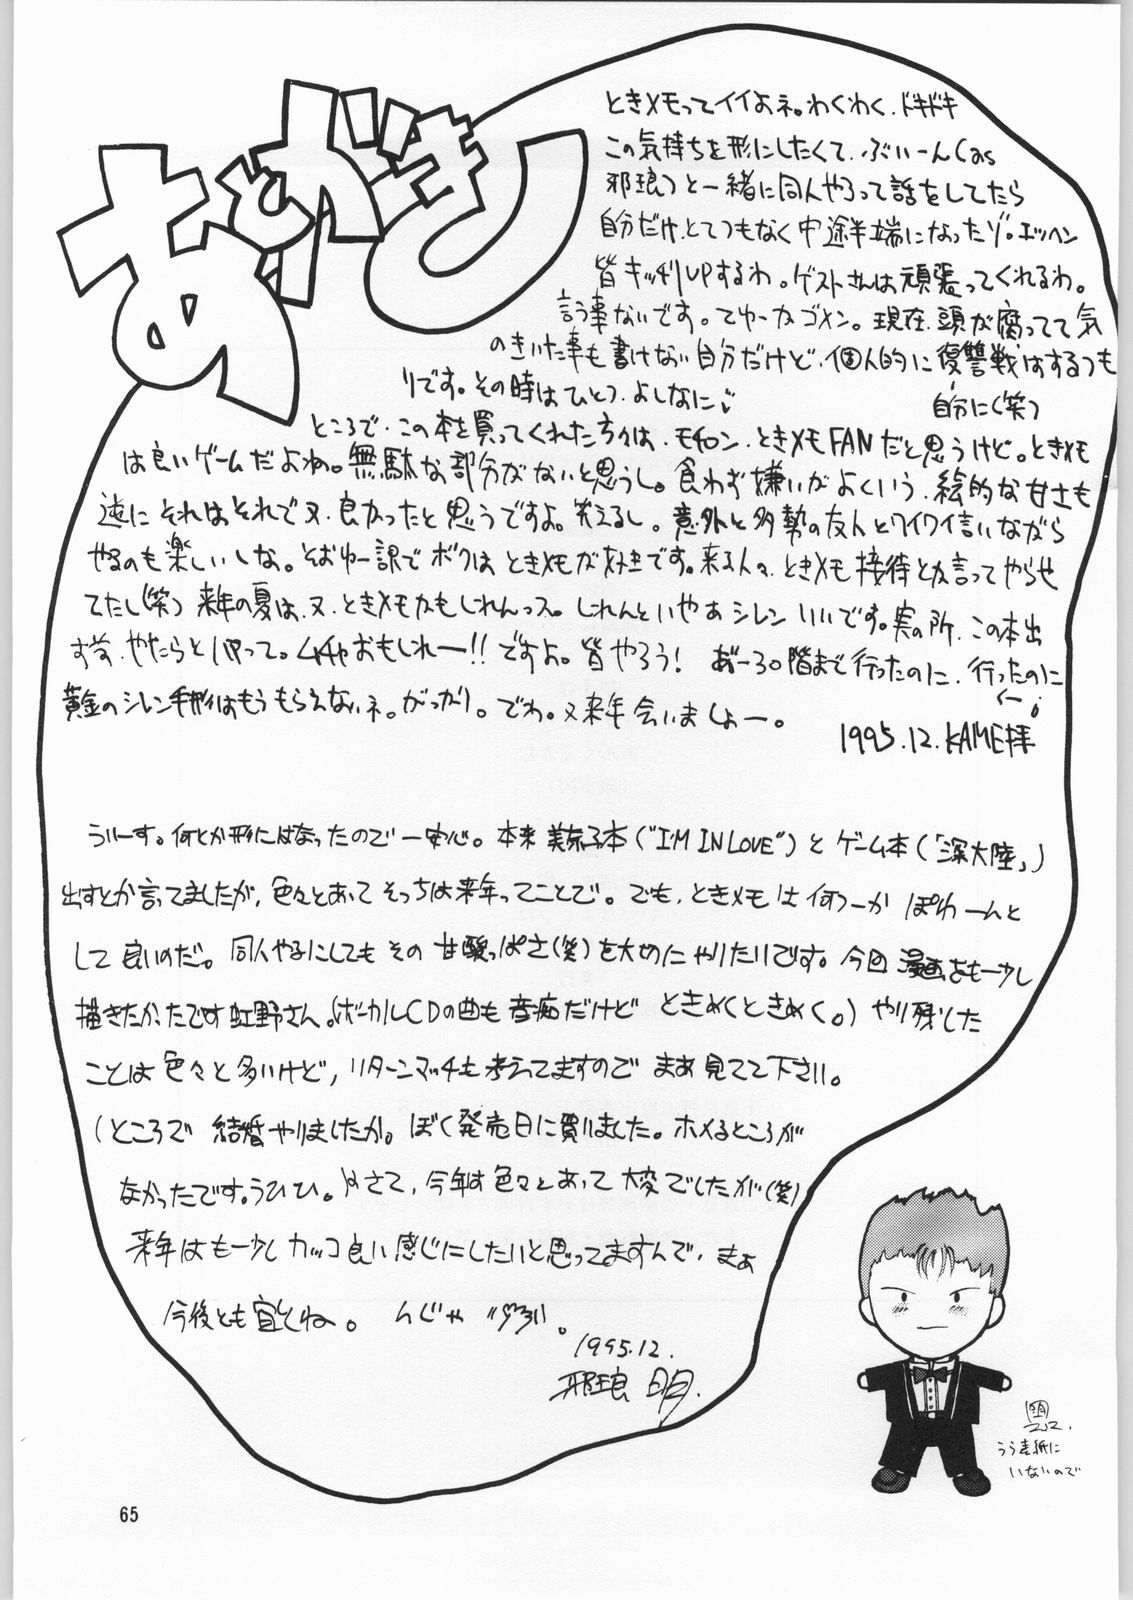 あとがき
ときメモってイイよネ。わくわく、ドキドキ
この気持ちを形にしたくて、ぶいーん(as
邪琅)と一緒に同人やろって話をしてたら
自分だけ、とてつもなく中途半端になったゾ。エッヘン
皆キッチリUPするわ。ゲストさんは頑張ってくれるわ。
言う事ないです。てゆーかゴメン。現在、頭が腐ってて気
のきいた事も書けない自分だけど、個人的に復讐戦はするつも
りです。その時はひとつ、よしなに
自分に(笑)
ところで、この本を買ってくれた方々は、モチロン、ときメモFANだと思うけど。ときメモ
は良いゲームだよね。無駄な部分がないと思うし。食わず嫌いがよくいう、絵的な甘さも
逆にそれはそれで又、良かったと思うですよ。笑えるし。意外と多勢の友人とワイワイ言いながら
やるのも楽しいしな。そおゆー訳でボクはときメモが好きです。来る人々、ときメモ接待とか言ってやらせ
てたし(笑) 来年の夏は、又、ときメモかもしれんっス。しれんといやあシレンいいです。実の所、この本出
ず前、やたらとハマって。ムチャおもしれー!!ですよ。皆やろう! あーる。階まで行ったのに、行ったのに
黄金のシレン手形はもうもらえないネ。がっかり。でわ。又来年会いましょー。
1995.12.KAME拝
ういーす。何とか形にはなったので一安心。本来 美奈子本("I'M IN LOVE")とゲーム本(「深大陸」)
出すとか言ってましたが、色々とあってそっちは来年ってことで。でも、ときメモは何つーか ぽわーんと
して良いのだ。同人やるにしてもその甘酸っぱさ(笑)を大めにやりたいです。今回 漫画をも一少し
描きたかったです虹野さん。(ボーカルCDの曲も音痴だけど ときめくときめく。) やり残した
ことは色々と多いけど、リターンマッチも考えてますので まあ見てて下さい。
(ところで 結婚やりましたか。ぼく発売日に買いました。ホメるところが
なかったです。うひひ。) さて、今年は色々とあって大変でしたが(笑)
来年はも一少しカッコ良い感じにしたいと思ってますんで、まぁ
今後とも宜しくね。 んじゃ
1995.12.
邪琅 明.
うら表紙に
いないので
65